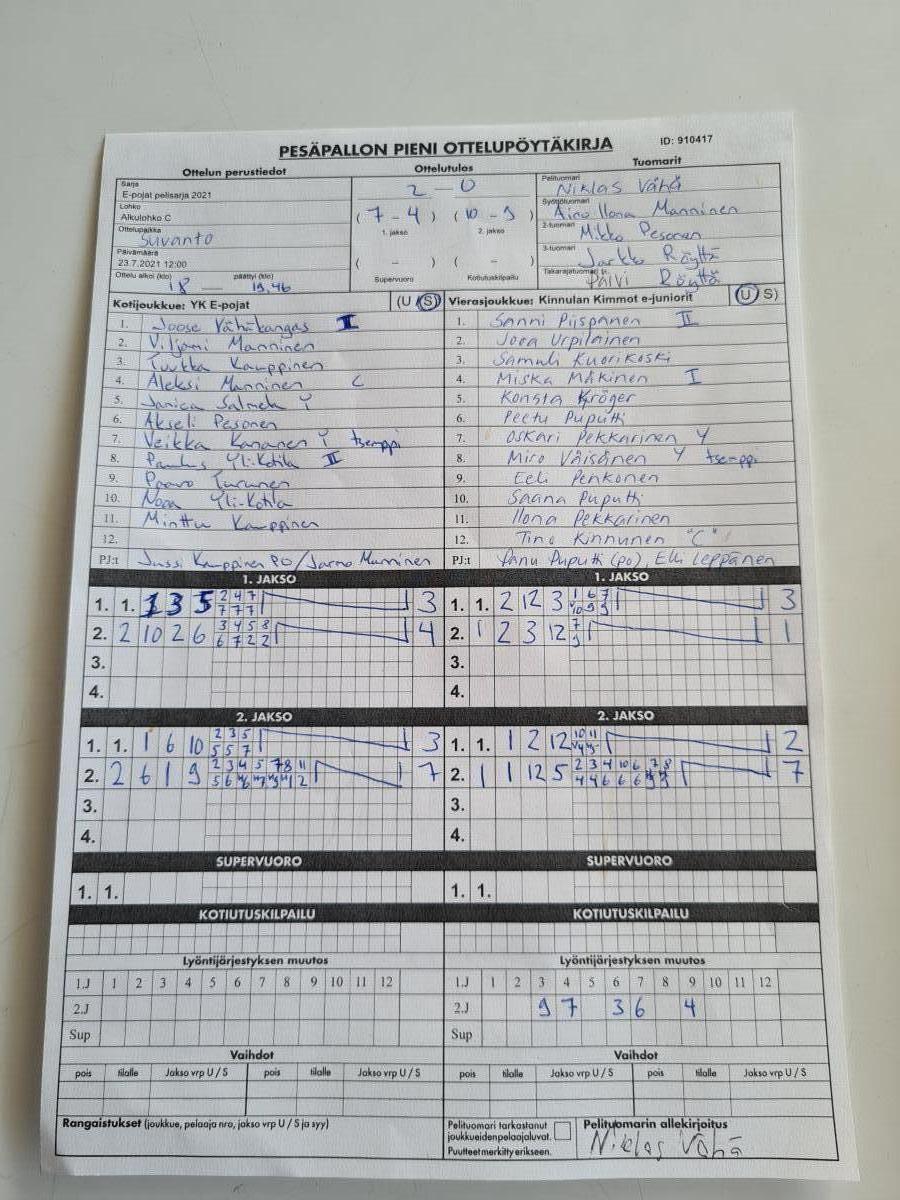 PESÄPALLON PIENI OTTELUPÖYTÄKIRJA ID: 910417
Ottelun perustiedot Ottelutulos Tuomarit
Sarja
E-pojat pelisarja 2021
Lohko
Alkulohko C
Ottelupaikka
Suvanto
Päivämäärä
23.7.2021 12:00
Ottelu alkoi (klo) päättyi (klo)
18 19.46
2 - 0
( 7 - 4 ) ( 10 - 9 )
1. jakso 2. jakso
( - ) ( - )
Supervuoro Kotiutuskilpailu
Pelituomari
Niklas Vähä
Syöttötuomari
Aino Ilona Manninen
2-tuomari
Mikko Pesonen
3-tuomari
Jarkko Röyttä
Takarajatuomari
Päivi Röyttä
Kotijoukkue: YK E-pojat (U S)
1. Joose Vähäkangas II
2. Viljami Manninen
3. Tuukka Kamppinen
4. Aleksi Manninen C
5. Janica Salmela Y
6. Akseli Pesonen
7. Veikka Kananen Y tsemppi
8. Paulus Yli-Kotila II
9. Paavo Turunen
10. Nooa Yli-Kotila
11. Minttu Kamppinen
12.
PJ:t Jussi Kamppinen PO/Jarmo Manninen
Vierasjoukkue: Kinnulan Kimmot e-juniorit (U S)
1. Sanni Piispanen II
2. Jooa Urpilainen
3. Samuli Kuorikoski
4. Miska Mäkinen I
5. Konsta Kröger
6. Peetu Puputti
7. Oskari Pekkarinen Y
8. Miro Väisänen Y tsemppi
9. Eeli Penkonen
10. Saana Puputti
11. Ilona Pekkarinen
12. Tino Kinnunen "C"
PJ:t Panu Puputti (po), Elli Leppänen
1. JAKSO 1. JAKSO
1. 1. 1 3 5 2 4 7 3
7 7 7
2. 2 10 2 6 3 4 5 8 4
6 7 2 2
3.
4.
1. 1. 2 12 3 1 6 7 3
2. 1 2 3 12 7 1
9
3.
4.
2. JAKSO 2. JAKSO
1. 1. 1 6 10 2 3 5 3
5 5 7
2. 2 6 1 9 2 3 4 5 7 8 11 7
3.
4.
1. 1. 1 2 12 10 11 2
2. 1 1 12 5 2 3 4 10 6 7 8 7
3.
4.
SUPERVUORO SUPERVUORO
1. 1. 1. 1.
KOTIUTUSKILPAILU KOTIUTUSKILPAILU
Lyöntijärjestyksen muutos Lyöntijärjestyksen muutos
1.J 1 2 3 4 5 6 7 8 9 10 11 12 1.J 1 2 3 4 5 6 7 8 9 10 11 12
2.J 2.J 9 7 3 6 4
Sup Sup
Vaihdot Vaihdot
pois tilalle Jakso vrp U / S pois tilalle Jakso vrp U / S pois tilalle Jakso vrp U / S pois tilalle Jakso vrp U / S
Rangaistukset (joukkue, pelaaja nro, jakso vrp U / S ja syy)
Pelituomari tarkastanut
joukkueiden pelaajaluvat.
Puutteet merkitty erikseen.
Pelituomarin allekirjoitus
Niklas Vähä